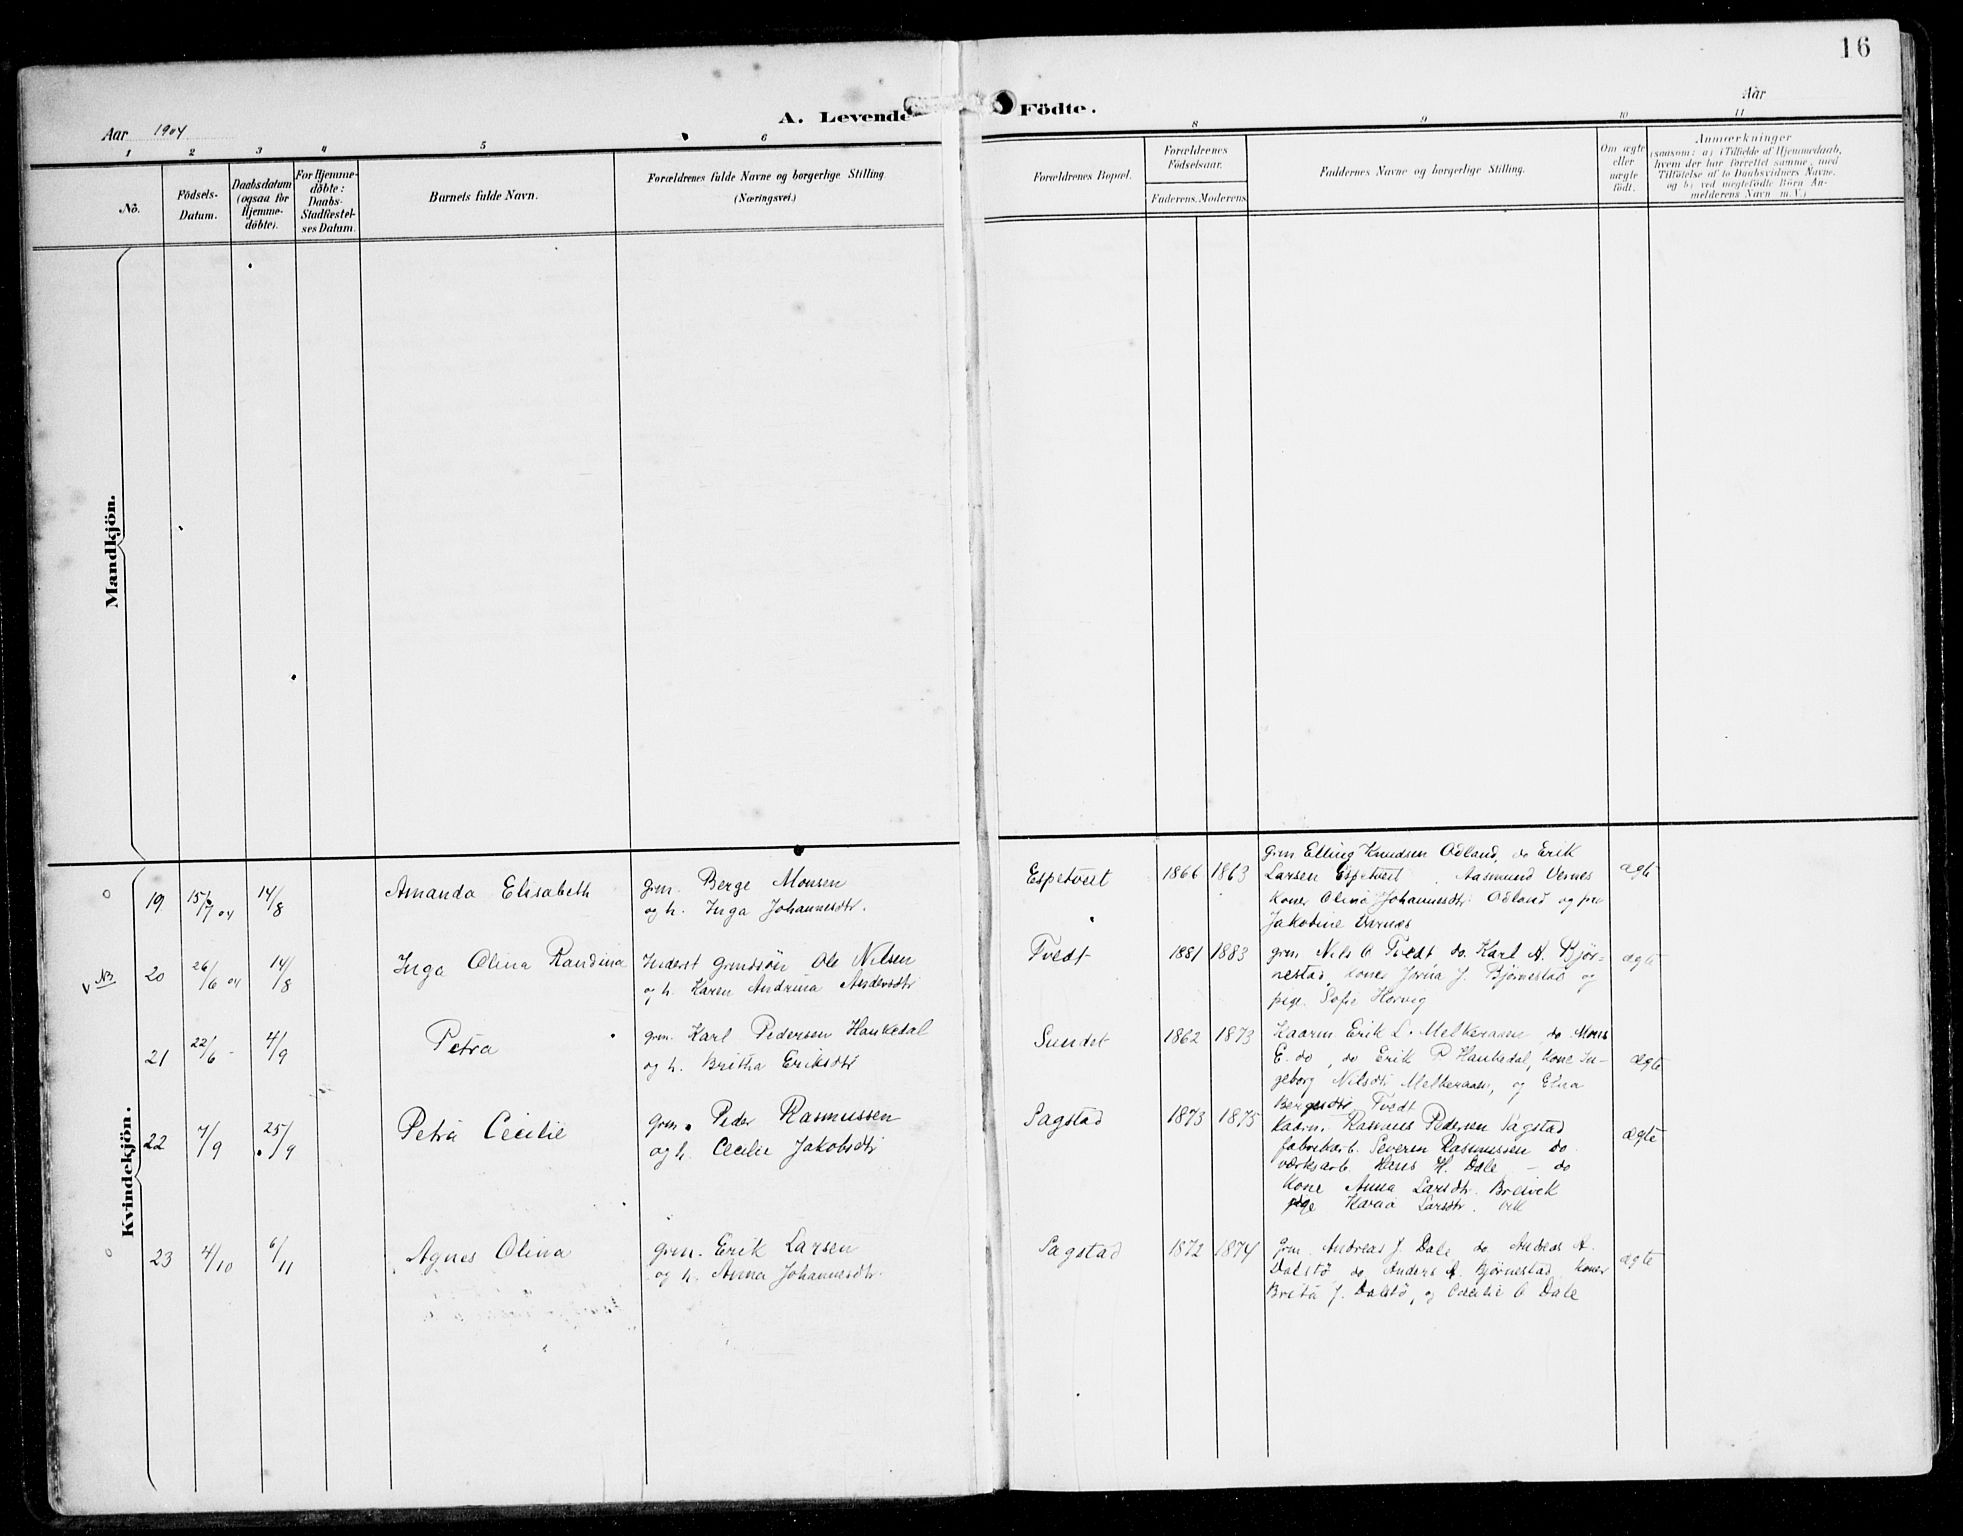 16
Aar 1904
A. Levende Födte.
Aar
1 2 3 4 5 6 8 9 10 11
No.
Födsels-
Datum.
Daabsdatum
(ogsaa for
Hjemme-
døbte).
For Hjemme-
døbte:
Daabs-
Stadfæstel-
ses Datum.
Barnets fulde Navn.
Forældrenes fulde Navne og borgerlige Stilling
(Næringsvei.)
Forældrenes Bopæl.
Forældrenes
Födselsaar.
Faderens. Moderens.
Faddernes Navne og borgerlige Stilling.
Om ægte
eller
uægte
født.
Anmærkninger
(saasom: a) i Tilfælde af Hjemmedaab,
hvem der har forrettet samme, med
Tilføielse af to Daabsvidners Navne.
og b) ved uægtefödte Börn An-
melderens Navn m.V.)
Mandkjön.
Kvindekjön.
19 15/7 04 14/8
Amanda Elisabeth
grm. Berge Monsen
og h. Inga Johannesdtr.
Espetveit 1866 1863
grm Elling Knudsen Odland, do Erik
Larsen Espetveit Aasmund Vernes
Koner Olina Johannesdtr Odland og
Jakobine Vernes
ægte
v NB 20 26/6 04 14/8
Inga Olina Randina
Inderst Grundsøn Ole Nilsen
og h. Karen Andrina Andersdtr
Tvedt 1881 1883
grm Nils O Tvedt do. Karl A. Bjør-
nestad, Koner J. Bjørnestad og
pige. Sofie Horvig
ægte
21 22/6 - 4/9
Petra
grm. Karl Pedersen Haukedal
og h. Britha Eriksdtr
Sundet 1862 1873
Kaarm. Erik L. Melkeraaen, do Mons
E. do, do Erik P Haukedal, Kone In-
geborg Nilsdtr Melkeraaen, og Elna
Bergesdtr Tvedt
ægte
22 7/9 25/9
Petra Cecilie
grm. Peder Rasmussen
og h. Cecilie Jakobsdtr
Sagstad 1873 1875
Kaarm. Rasmus Pedersen Sagstad
fabrikarb. Severin Rasmussen do.
værksarb. Hans H. Dale - do
Kone Anna Larsdtr. Breivik
pige Karia Larsdtr. Vik
ægte
23 4/10 6/11
Agnes Olina
grm. Erik Larsen
og h. Anna Johannesdtr.
Sagstad 1872 1874
grm. Andreas J. Dale do Andreas A.
Dalstø, do Anders A. Bjørnestad, Koner
Brita J. Dalstø, og Cecilie O Dale
ægte